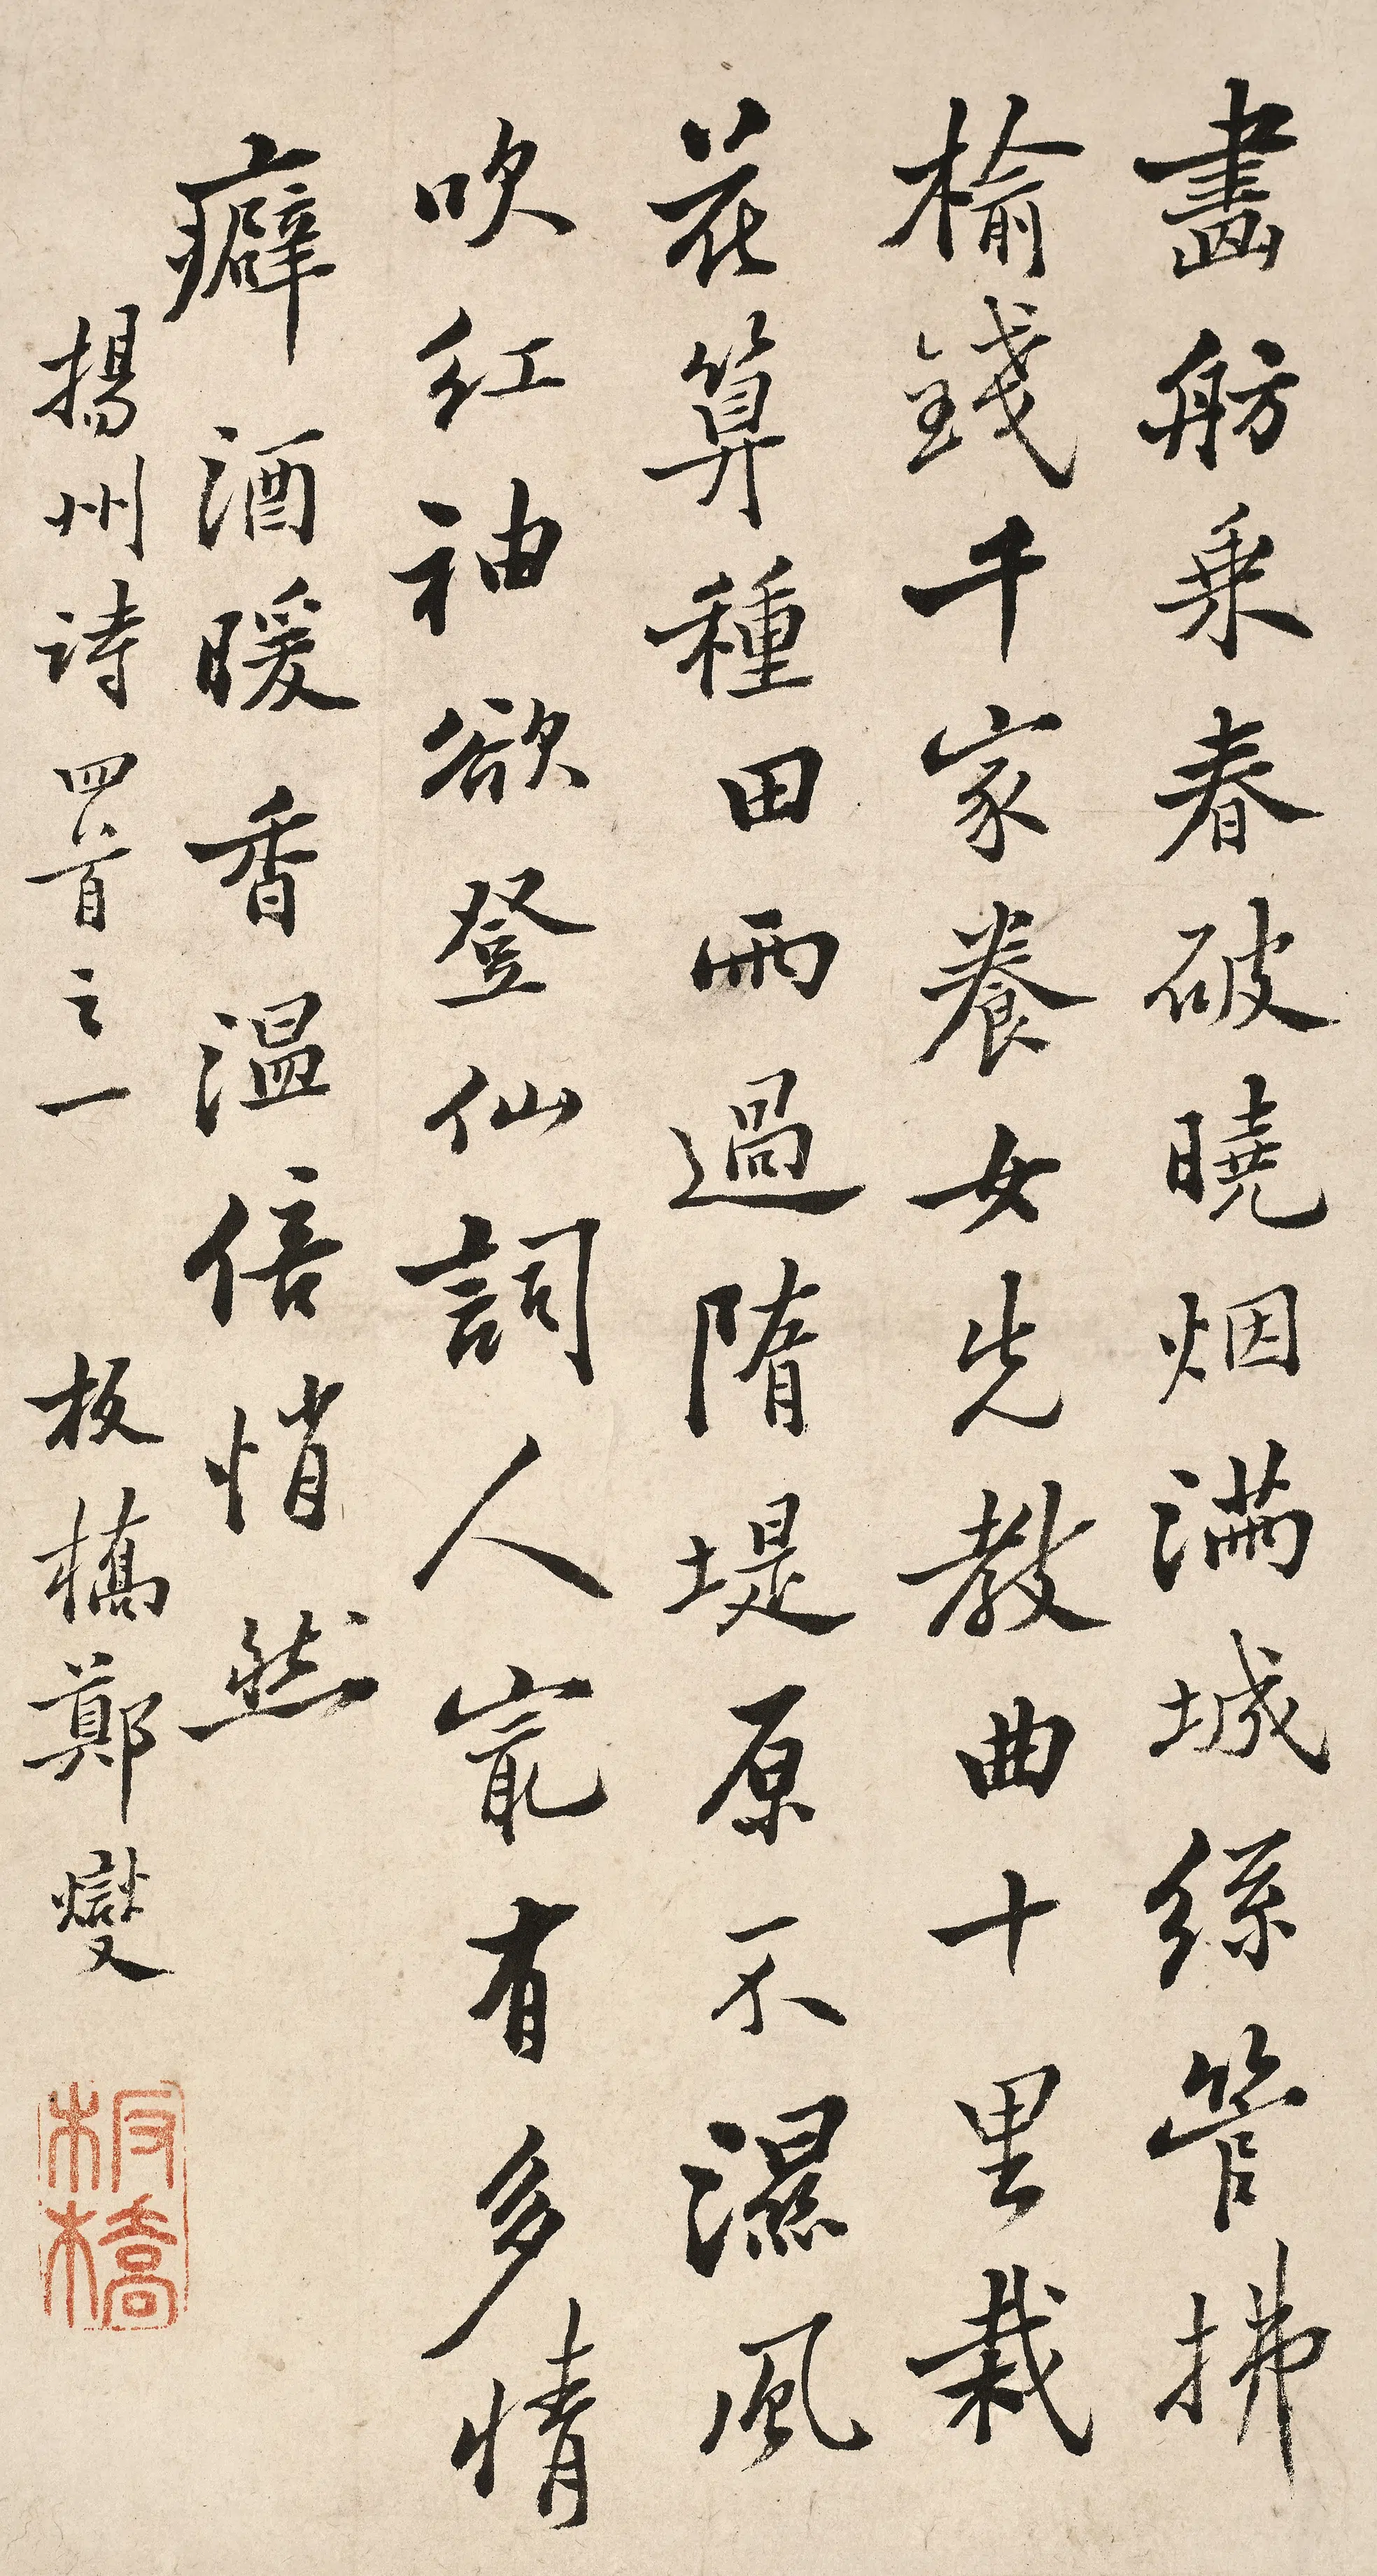 畫舫乘春破曉烟滿城絲管拂
榆錢千家養女先教曲十里栽
花算種田雨過隋堤原不濕風
吹紅袖欲登仙詞人寂有多情
癖酒暖香溫倍悄然
揚州詩四首之一 板橋鄭燮
板橋